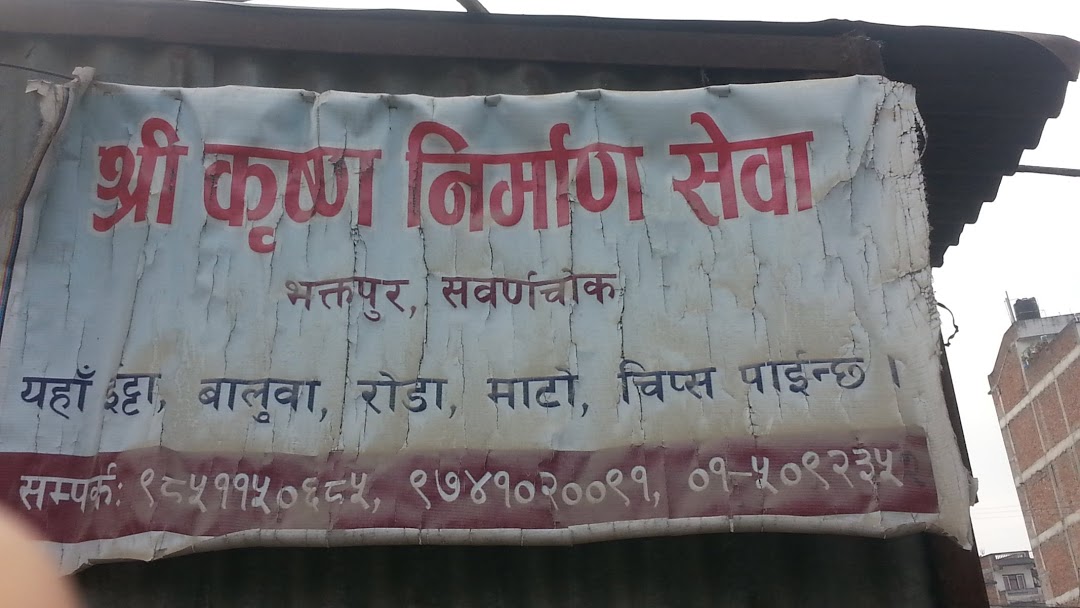 श्री कृष्ण निर्माण सेवा
भक्तपुर, सवर्णचोक
यहाँ इट्टा, बालुवा, रोडा, माटो, चिप्स पाईन्छ ।
सम्पर्क: ९८५११५०६८५, ९७४१०२००९१, ०१-५०९२३५